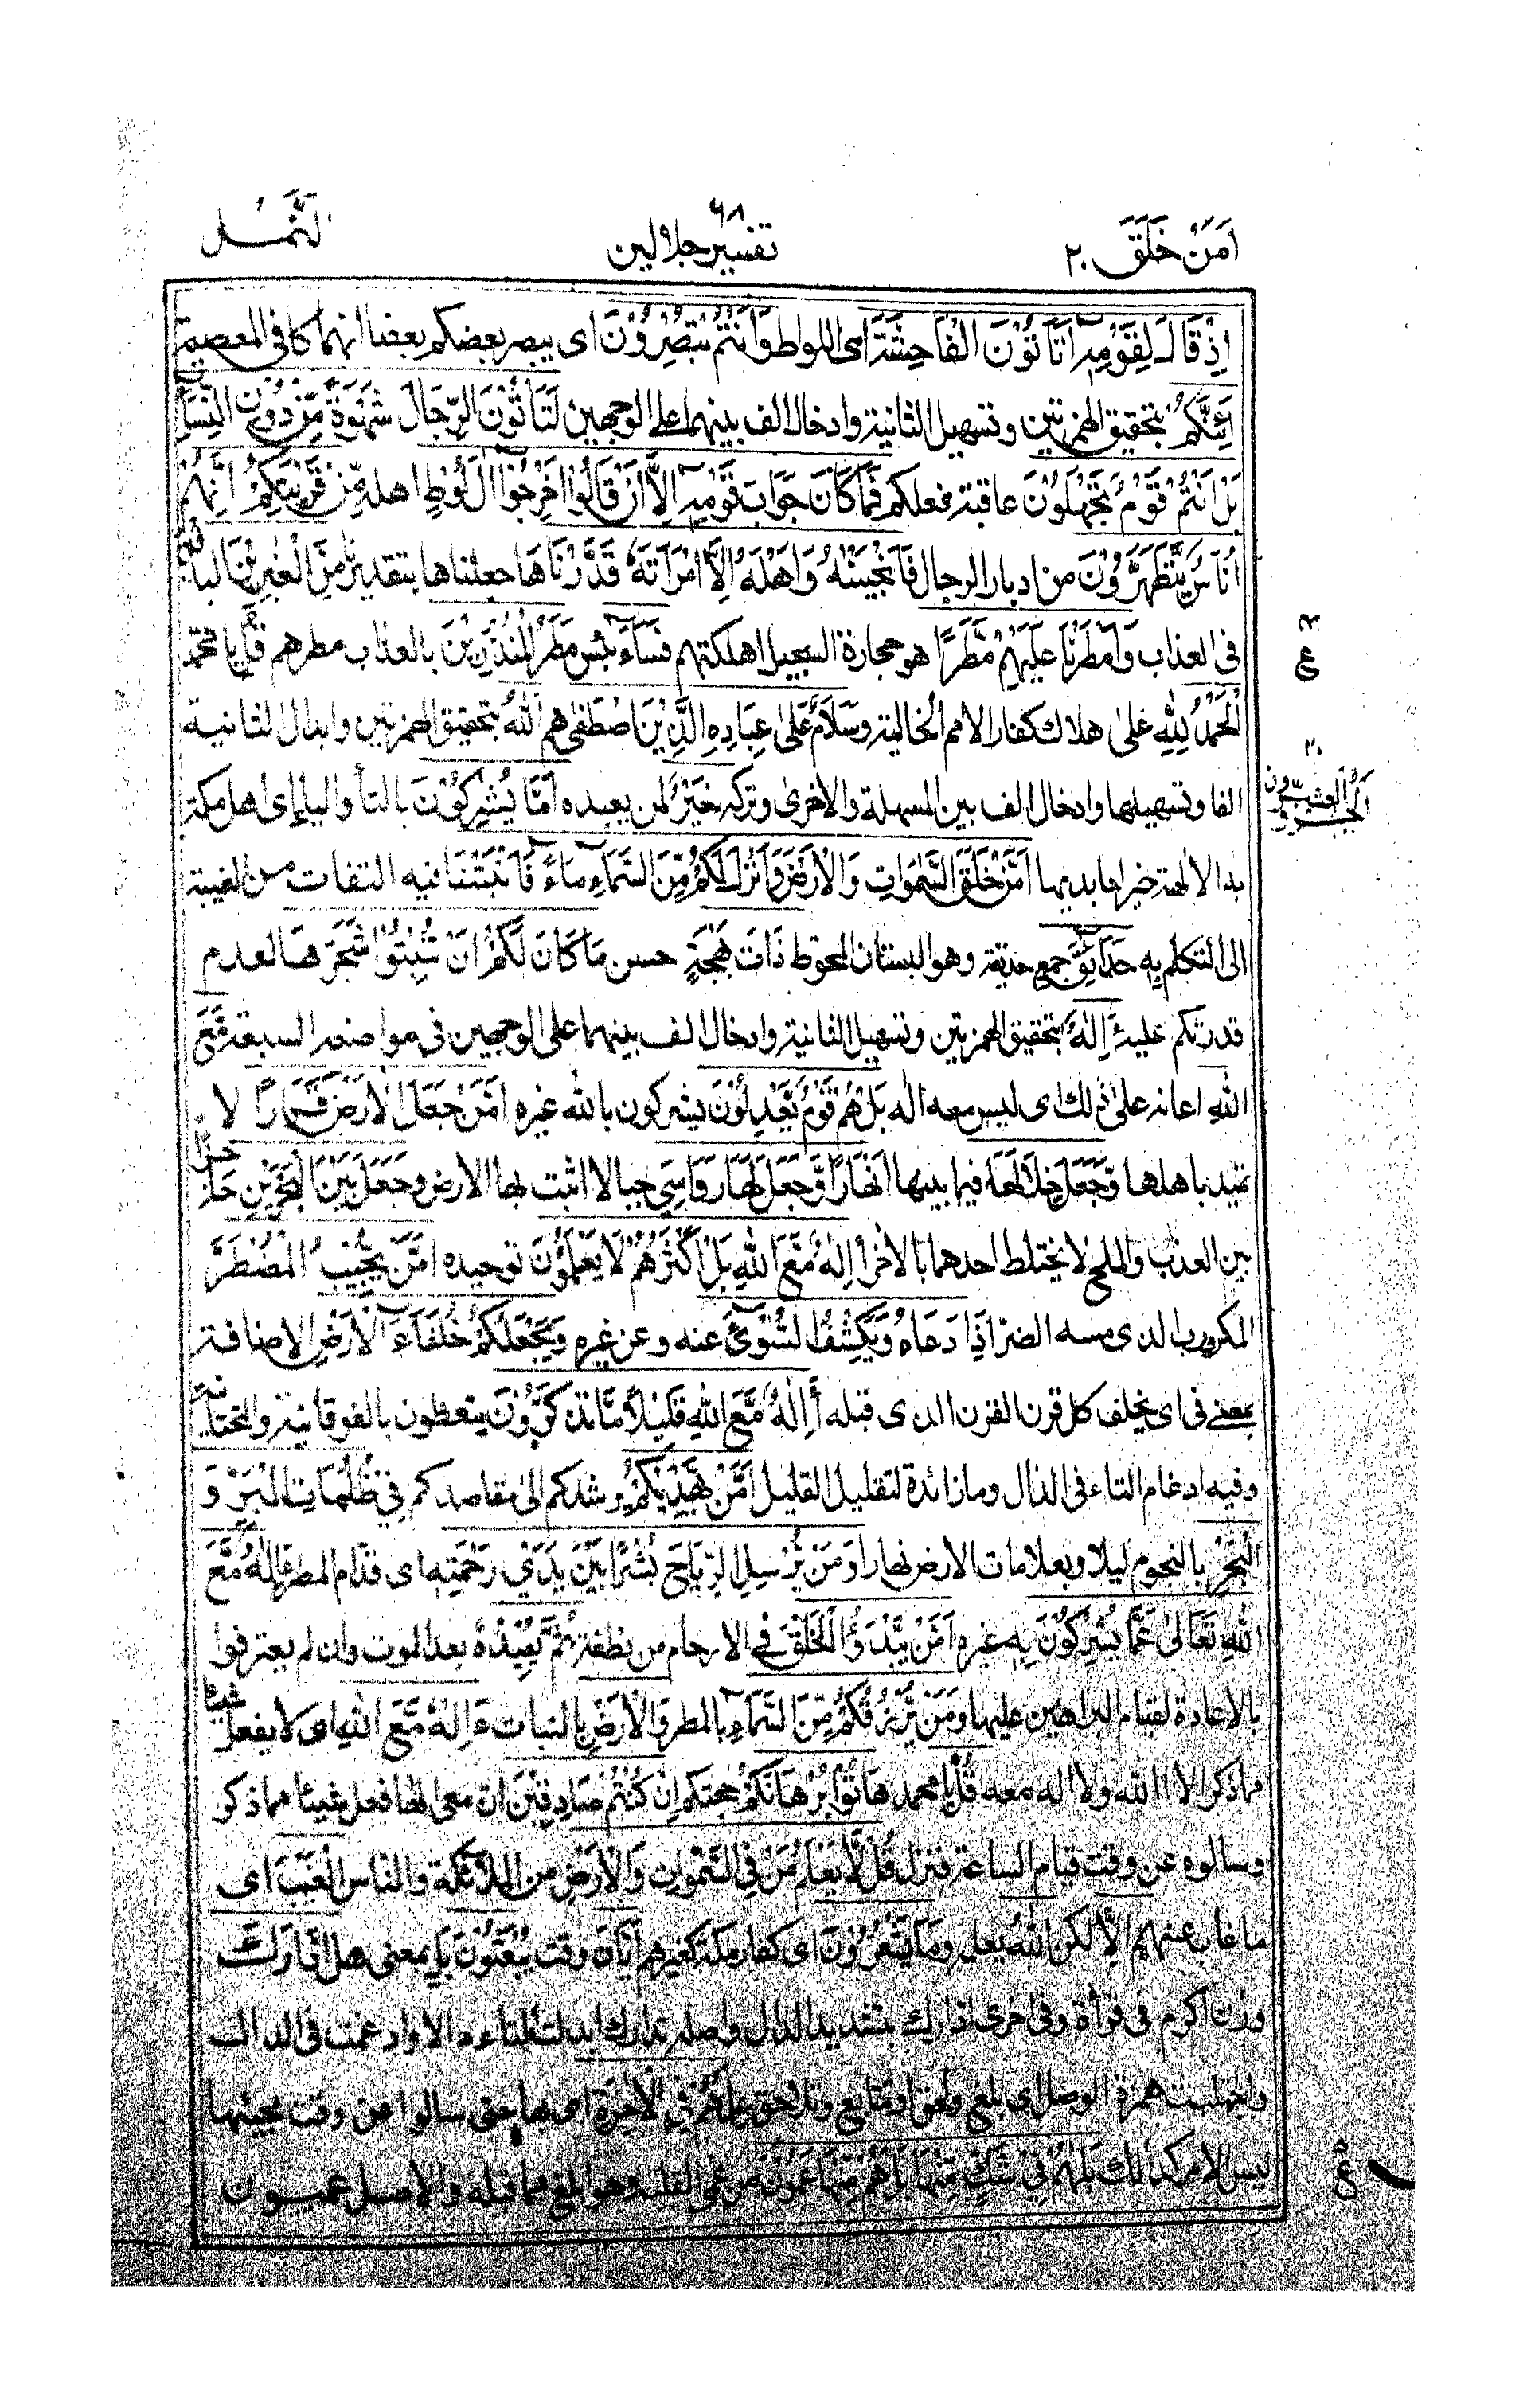 اَمَّنْ خَلَقَ ٢٠
تفسير جلالين
٦٨
النَّمْل
اِذْ قَالَ لِقَوْمِهٖٓ اَتَاْتُوْنَ الْفَاحِشَةَ اى اللواط وَاَنْتُمْ تُبْصِرُوْنَ اى يبصر بعضكم بعضا انهماكا فى المعصية
اَئِنَّكُمْ بتحقيق الهمزتين وتسهيل الثانية وادخال الف بينهما على الوجهين لَتَاْتُوْنَ الرِّجَالَ شَهْوَةً مِّنْ دُوْنِ النِّسَآءِ
بَلْ اَنْتُمْ قَوْمٌ تَجْهَلُوْنَ عاقبة فعلكم فَمَا كَانَ جَوَابَ قَوْمِهٖٓ اِلَّآ اَنْ قَالُوْٓا اَخْرِجُوْٓا اٰلَ لُوْطٍ اهله مِّنْ قَرْيَتِكُمْ اِنَّهُمْ
اُنَاسٌ يَّتَطَهَّرُوْنَ من ادبار الرجال فَاَنْجَيْنٰهُ وَاَهْلَهٗٓ اِلَّا امْرَاَتَهٗ قَدَّرْنَاهَا جعلناها بتقديرنا مِنَ الْغٰبِرِيْنَ الباقين
فى العذاب وَاَمْطَرْنَا عَلَيْهِمْ مَّطَرًا هو حجارة السجيل اهلكتهم فَسَآءَ بئس مَطَرُ الْمُنْذَرِيْنَ بالعذاب مطرهم قُلْ يا محمد
الْحَمْدُ لِلّٰهِ على هلاك كفار الامم الخالية وَسَلَامٌ عَلٰى عِبَادِهِ الَّذِيْنَ اصْطَفٰى هم اٰللّٰهُ بتحقيق الهمزتين وابدال الثانية
الفا وتسهيلها وادخال الف بين المسهلة والاخرى وتركه خَيْرٌ لمن يعبده اَمَّا يُشْرِكُوْنَ بالتاء والياء اى اهل مكة
به الالهة خير لعابديها اَمَّنْ خَلَقَ السَّمٰوَاتِ وَالْاَرْضَ وَاَنْزَلَ لَكُمْ مِّنَ السَّمَآءِ مَآءً فَاَنْبَتْنَا فيه التفات من الغيبة
الى التكلم بِهٖ حَدَآئِقَ جمع حديقة وهو البستان المحوط ذَاتَ بَهْجَةٍ حسن مَا كَانَ لَكُمْ اَنْ تُنْبِتُوْا شَجَرَهَا لعدم
قدرتكم عليه ءَاِلٰهٌ بتحقيق الهمزتين وتسهيل الثانية وادخال الف بينهما على الوجهين فى مواضعه السبعة مَّعَ
اللّٰهِ اعانه على ذلك اى ليس معه اله بَلْ هُمْ قَوْمٌ يَّعْدِلُوْنَ يشركون بالله غيره اَمَّنْ جَعَلَ الْاَرْضَ قَرَارًا لا
تميد باهلها وَّجَعَلَ خِلٰلَهَآ فيما بينها اَنْهَارًا وَّجَعَلَ لَهَا رَوَاسِيَ جبالا اثبت بها الارض وَجَعَلَ بَيْنَ الْبَحْرَيْنِ حَاجِزًا
بين العذب والملح لا يختلط احدهما بالاخر أَاِلٰهٌ مَّعَ اللّٰهِ بَلْ اَكْثَرُهُمْ لَا يَعْلَمُوْنَ توحيده اَمَّنْ يُّجِيْبُ الْمُضْطَرَّ
المكروب الذى مسه الضر اِذَا دَعَاهُ وَيَكْشِفُ السُّوْٓءَ عنه وعن غيره وَيَجْعَلُكُمْ خُلَفَآءَ الْاَرْضِ الاضافة
بمعنى فى اى يخلف كل قرن القرن الذى قبله أَاِلٰهٌ مَّعَ اللّٰهِ قَلِيْلًا مَّا تَذَكَّرُوْنَ يتعظون بالفوقانية والتحتانية
وفيه ادغام التاء فى الذال وما زائدة لتقليل القليل اَمَّنْ يَّهْدِيْكُمْ يرشدكم الى مقاصدكم فِيْ ظُلُمَاتِ الْبَرِّ وَ
الْبَحْرِ بالنجوم ليلا وبعلامات الارض نهارا وَمَنْ يُّرْسِلُ الرِّيَاحَ بُشْرًا بَيْنَ يَدَيْ رَحْمَتِهٖ اى قدام المطر ءَاِلٰهٌ مَّعَ
اللّٰهِ تَعَالٰى عَمَّا يُشْرِكُوْنَ به غيره اَمَّنْ يَّبْدَؤُا الْخَلْقَ فى الارحام من نطفة ثُمَّ يُعِيْدُهٗ بعد الموت وان لم يعترفوا
بالاعادة لقيام البراهين عليها وَمَنْ يَّرْزُقُكُمْ مِّنَ السَّمَآءِ بالمطر وَالْاَرْضِ بالنبات ءَاِلٰهٌ مَّعَ اللّٰهِ اى لا يفعل شيئا
مما ذكر الا الله ولا اله معه قُلْ يا محمد هَاتُوْا بُرْهَانَكُمْ حجتكم اِنْ كُنْتُمْ صَادِقِيْنَ ان معى الها فعل شيئا مما ذكر
وسالوه عن وقت قيام الساعة فنزل قُلْ لَّا يَعْلَمُ مَنْ فِى السَّمٰوَاتِ وَالْاَرْضِ من الملائكة والناس الْغَيْبَ اى
ما غاب عنهم اِلَّا لكن اللّٰهُ يعلمه وَمَا يَشْعُرُوْنَ اى كفار مكة كغيرهم اَيَّانَ وقت يُبْعَثُوْنَ بَلْ بمعنى هل ادْرَكَ
وزن اكرم فى قرأة وفى اخرى ادارك بتشديد الدال واصله تدارك ابدلت التاء دالا وادغمت فى الدال
واجتلبت همزة الوصل اى بلغ ولحق او تتابع وتلاحق عِلْمُهُمْ فِى الْاٰخِرَةِ اى بها حتى سالوا عن وقت مجيئها
ليس الامر كذلك بَلْ هُمْ فِيْ شَكٍّ مِّنْهَا بَلْ هُمْ مِّنْهَا عَمُوْنَ من عمى القلب وهو ابلغ مما قبله والاصل عميون
ع
٢٠
الجزو العشرون
ع